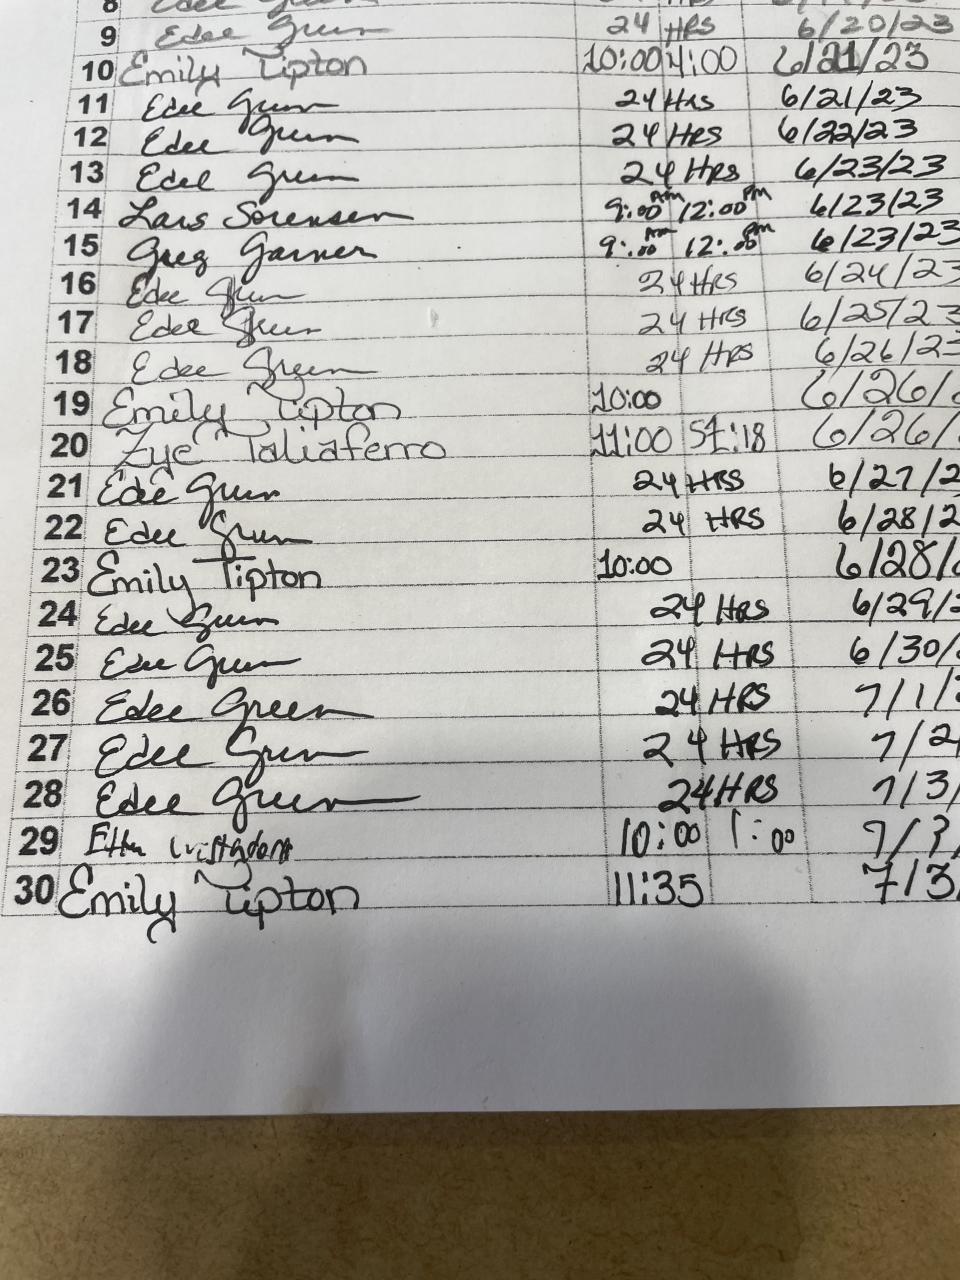 8 Edee Green 24 HRS
9 Edee Green 24 HRS 6/20/23
10 Emily Tipton 10:00 4:00 6/21/23
11 Edee Green 24 Hrs 6/21/23
12 Edee Green 24 HRS 6/22/23
13 Edee Green 24 HRS 6/23/23
14 Lars Sorensen 9:00 AM 12:00 PM 6/23/23
15 Greg Garner 9:00 AM 12:00 PM 6/23/23
16 Edee Green 24 HRS 6/24/23
17 Edee Green 24 HRS 6/25/23
18 Edee Green 24 HRS 6/26/23
19 Emily Tipton 10:00 6/26/
20 Zye Taliaferro 11:00 :18 6/26/
21 Edee Green 24 HRS 6/27/2
22 Edee Green 24 HRS 6/28/2
23 Emily Tipton 10:00 6/28/
24 Edee Green 24 HRS 6/29/2
25 Edee Green 24 HRS 6/30/
26 Edee Green 24 HRS 7/1/2
27 Edee Green 24 HRS 7/2/
28 Edee Green 24 HRS 7/3/
29 10:00 1:00 7/3/
30 Emily Tipton 11:35 7/3/